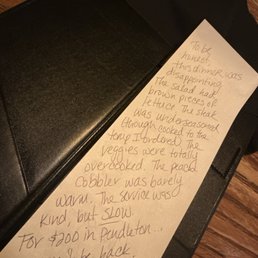 To be
honest
this dinner was
disappointing.
The salad had
brown pieces of
lettuce. The steak
was underseasoned
through cooked to the
temp I ordered. The
veggies were totally
overcooked. The peach
Cobbler was barely
warm. The service was
kind, but SLOW.
For $200 in Pendleton...
be back.